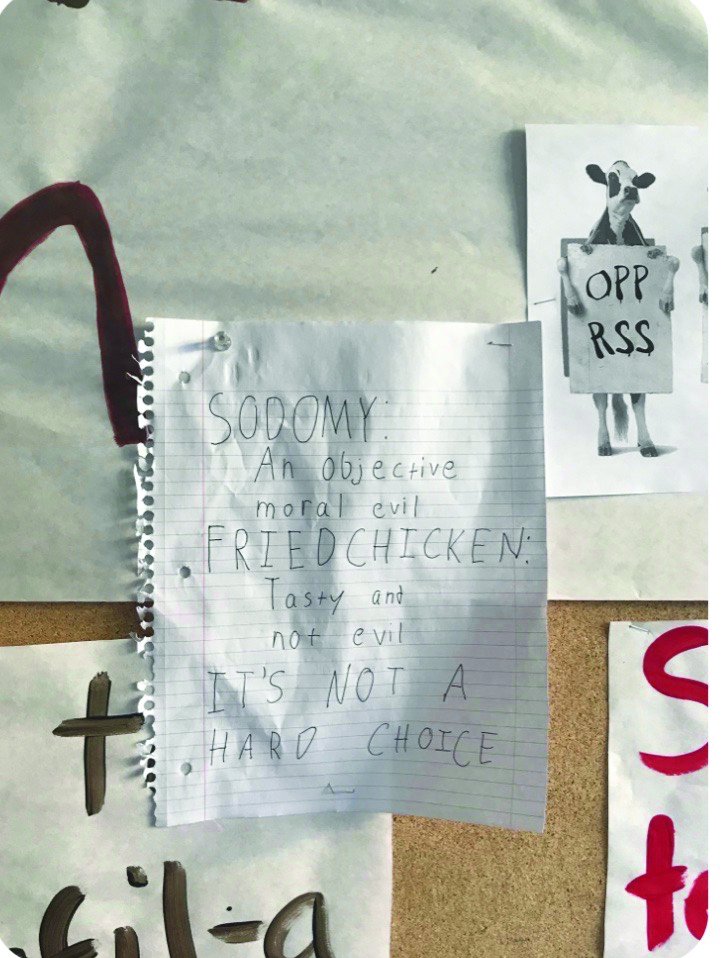 OPP
RSS
SODOMY:
An objective
moral evil
FRIED CHICKEN:
Tasty and
not evil
IT'S NOT A
HARD CHOICE
fil-a
S
to